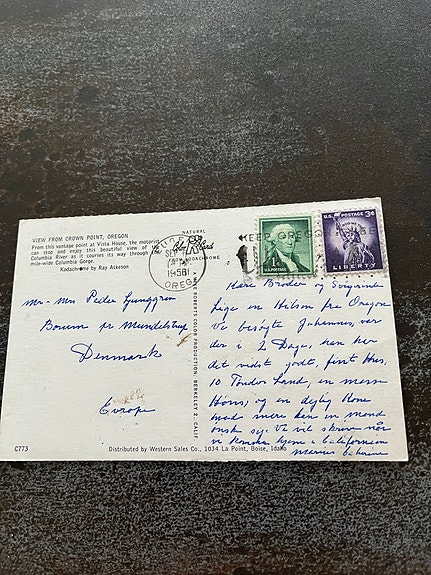 VIEW FROM CROWN POINT, OREGON
From this vantage point at Vista House, the motorist
can stop and enjoy this beautiful view of the
Columbia River as it courses its way through the
mile-wide Columbia Gorge.
Kodachrome by Ray Atkeson
NATURAL
Color Card
FROM KODACHROME
SEP
1958
OREG
KEEP OREGON
1¢
U.S. POSTAGE
U.S. POSTAGE 3¢
LIBERTY
Mr - Mrs Peder
Borum pr Mundelstrup
Denmark
Europe
ROBERTS COLOR PRODUCTION, BERKELEY 2, CALIF.
Kære Broder og Svigerinde
Lige en Hilsen fra Oregon
Vi besøgte Johannes var
der i 2 Dage, han har
det vidst godt, fint Hus,
10 Tønder Land, en masse
Høns, og en dejlig Kone
hvad mere kan en mand
ønske sig. Vi vil skrive når
vi kommer hjem i Californien
Marius
C773
Distributed by Western Sales Co., 1034 La Point, Boise, Idaho